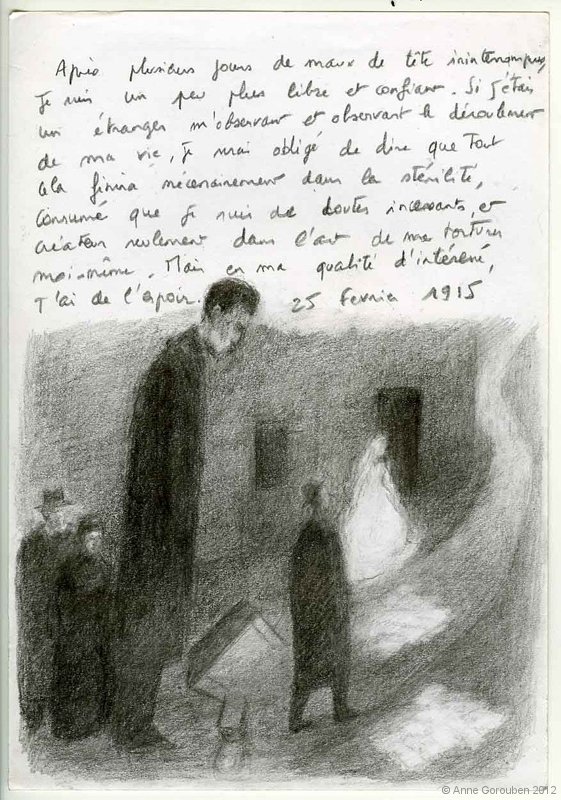 Après plusieurs jours de maux de tête ininterrompus,
je suis un peu plus libre et confiant. Si j'étais
un étranger m'observant et observant le déroulement
de ma vie, je serais obligé de dire que tout
cela finira nécessairement dans la stérilité,
consumé que je suis de doutes incessants, et
créateur seulement dans l'art de me torturer
moi-même. Mais en ma qualité d'intéressé,
J'ai de l'espoir. 25 Février 1915
© Anne Gorouben 2012